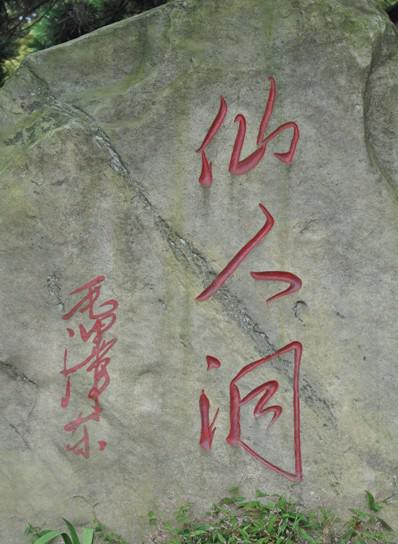 仙人洞
毛泽东